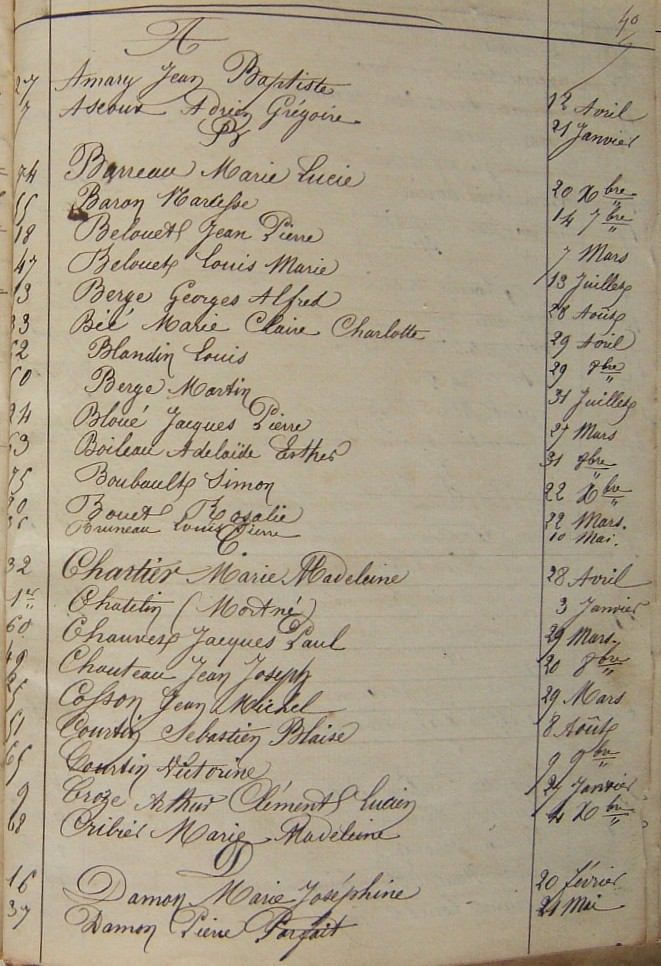 40
A
27 Amary Jean Baptiste 12 Avril
7 Ascoux Adrien Grégoire 21 Janvier
B
74 Barreau Marie Lucie 20 Xbre
55 Baron Narcisse 14 7bre
18 Belouet Jean Pierre 7 Mars
47 Belouet Louis Marie 13 Juillet
Berge Georges Alfred 28 Août
33 Marie Claire Charlotte 29 Avril
62 Blandin Louis 29 8bre
Berge Martin 31 Juillet
24 Bloué Jacques Pierre 27 Mars
63 Boileau Adelaïde Esther 31 8bre
75 Boubault Simon 22 Xbre
20 Bouet Rosalie 22 Mars.
Bruneau Louis Pierre 10 Mai.
C
32 Chartier Marie Madeleine 28 Avril
1er Chatelin (Mort Né) 3 Janvier
60 Chauvet Jacques Paul 29 Mars
49 Chauteau Jean Joseph 20 8bre
25 Cosson Jean Michel 29 Mars
51 Courtin Sebastien Blaise 8 Août
65 Courtin Victorine 9 9bre
9 Croze Arthur Clément Lucien 27 Janvier
68 Cribier Marie Madeleine 4 Xbre
D
16 Damon Marie Joséphine 20 Février
37 Damon Pierre Parfait 21 Mai